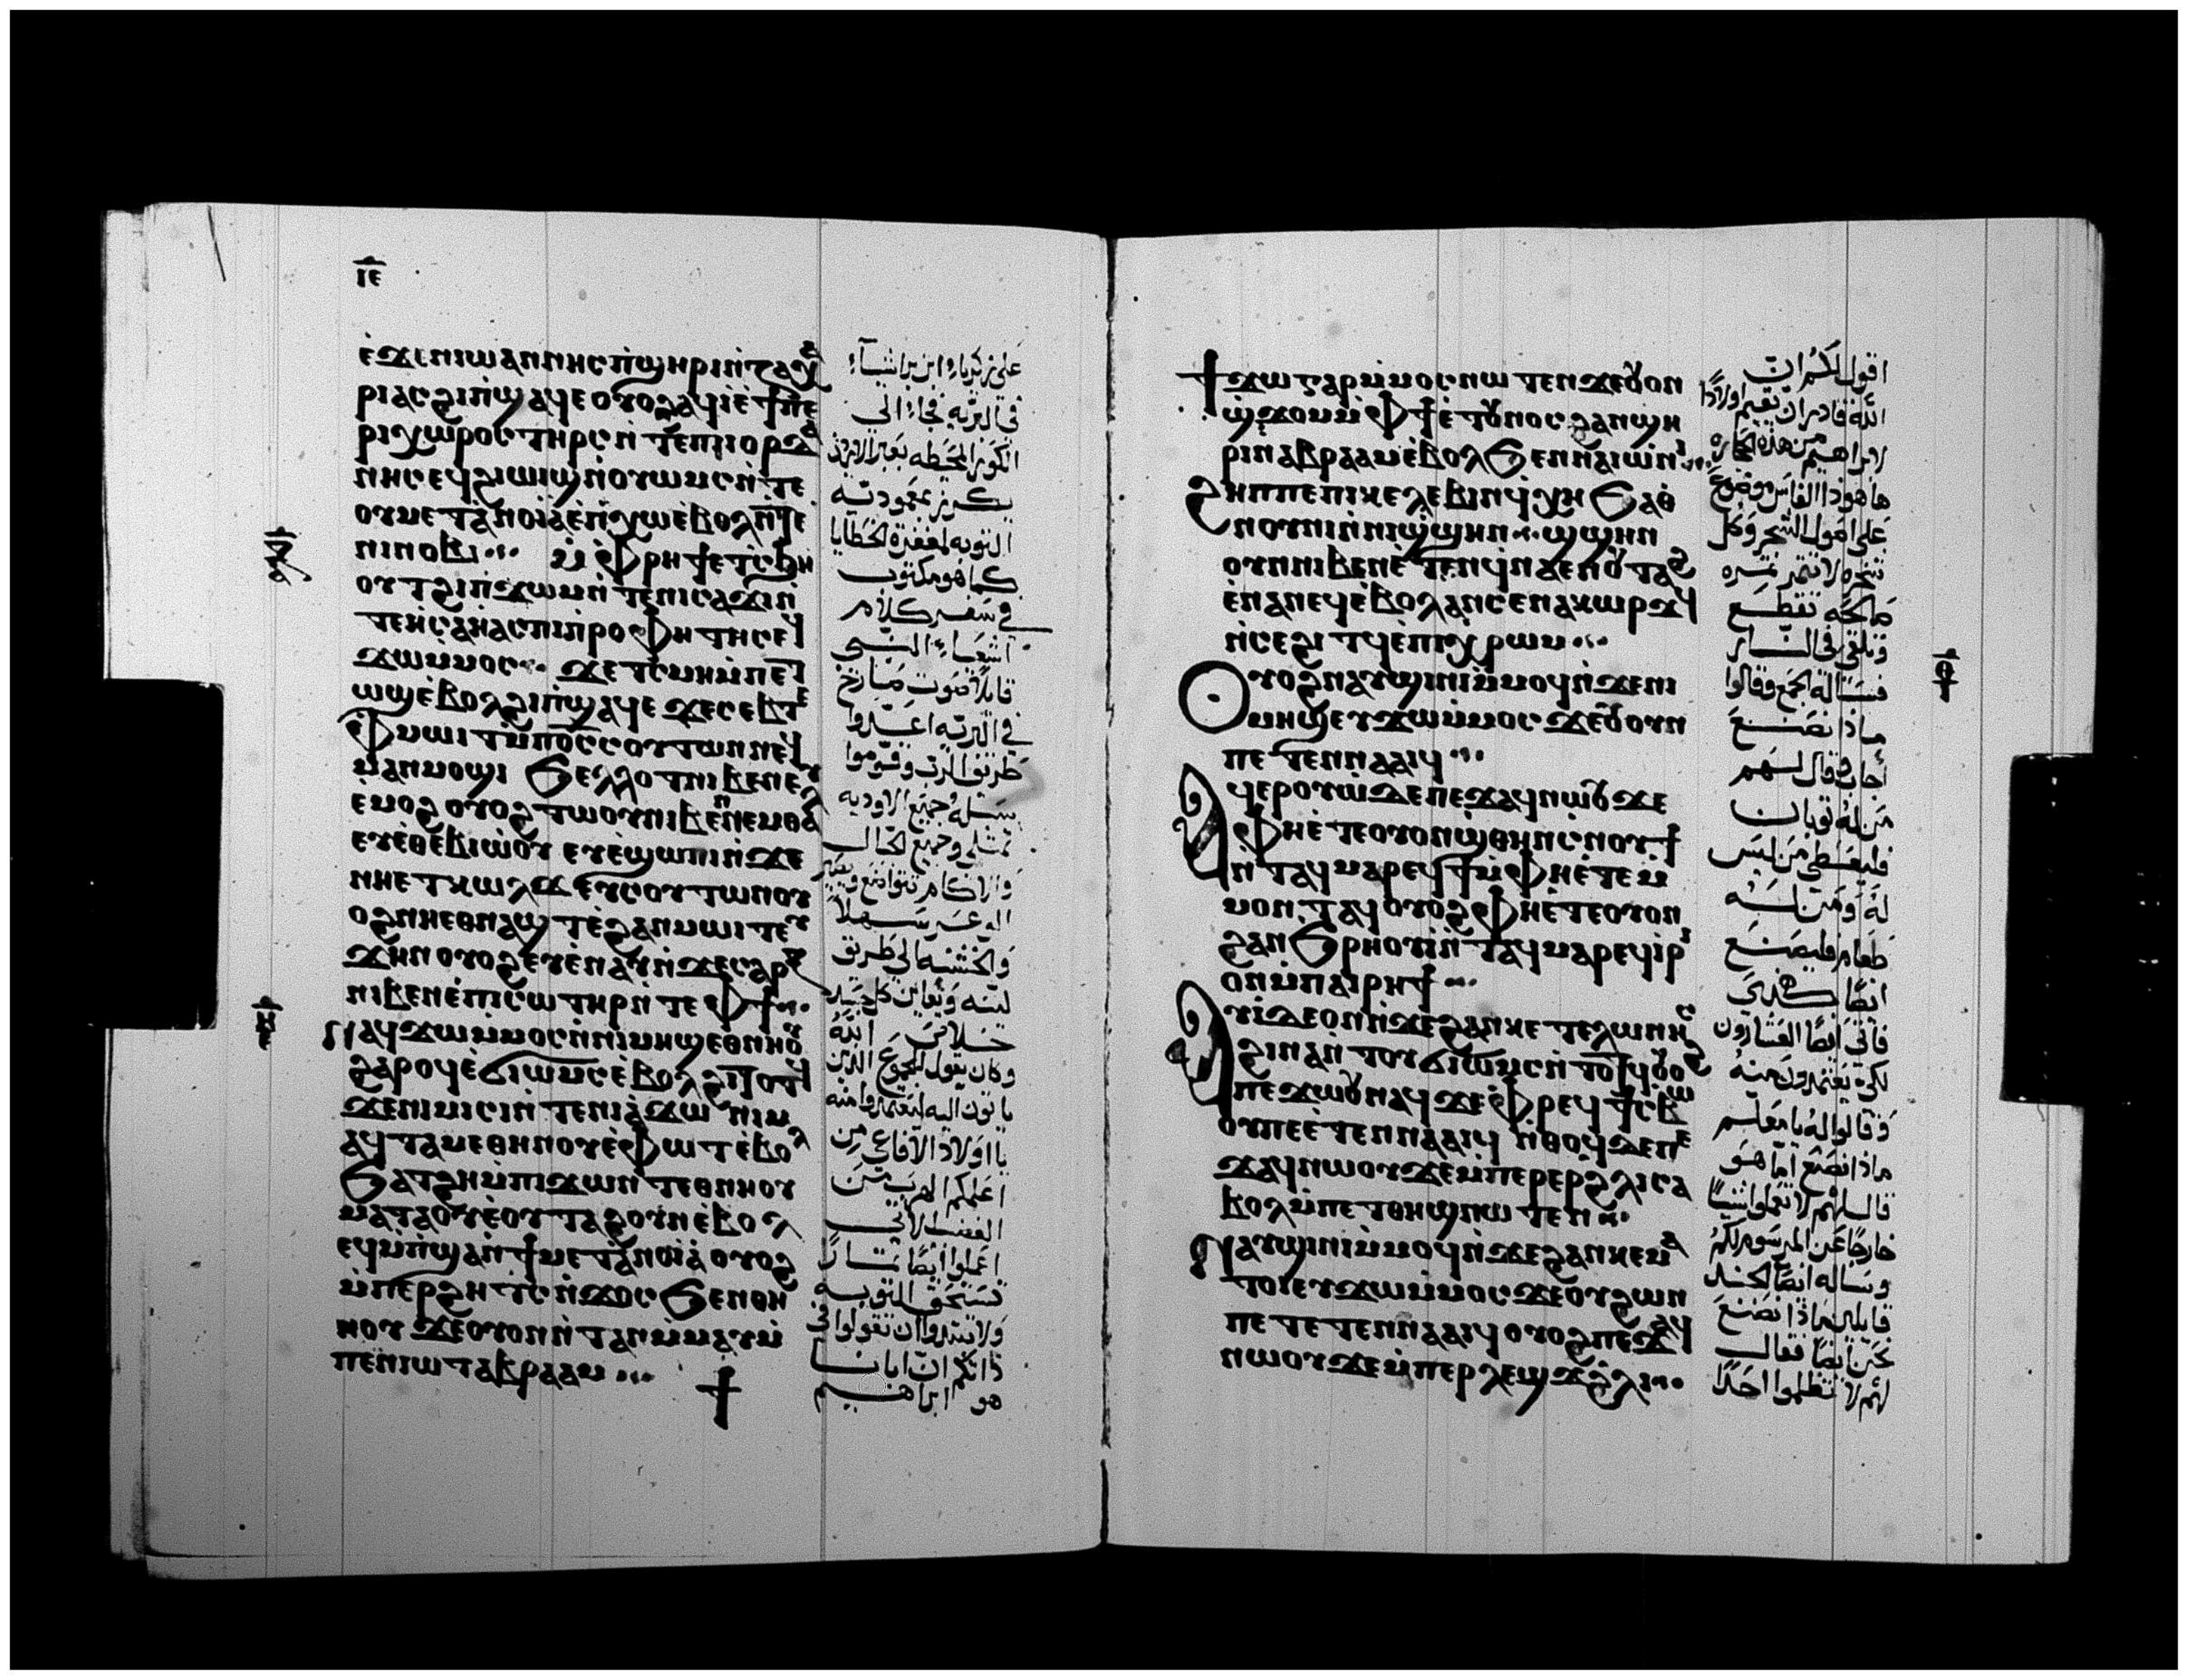 ⲓⲉ
ⲉ̀ϫⲉⲛⲓⲱⲁⲛⲛⲏⲥⲡ̀ϣⲏⲣⲓⲛ̀ⲍⲁⲭⲁ
ⲣⲓⲁⲥϩⲓⲡ̀ϣⲁϥⲉ ⲟⲩⲟϩⲁϥⲓ̀ⲉ̀ϯⲡⲉ
ⲣⲓⲭⲱⲣⲟⲥ ⲧⲏⲣⲥⲛ̀ⲧⲉⲡⲓⲓⲟⲣⲇⲁ
ⲛⲏⲥ ⲉϥϩⲓⲱⲓϣⲛ̀ⲟⲩⲱⲙⲥⲛ̀ⲧⲉ
ⲟⲩⲙⲉⲧⲁⲛⲟⲓⲁ̀ⲉ̀ⲡ̀ⲭⲱⲉ̀ⲃⲟⲗⲛ̀ⲧⲉ
ⲛⲓⲛⲟⲃⲓ
ⲙ̀ⲫⲣⲏϯⲉⲧⲥ̀ϧⲏ
ⲟⲩⲧϩⲓⲡ̀ϫⲱⲙⲛ̀ⲧⲉⲛⲓⲥⲁϫⲓⲛ̀
ⲧⲉⲏ̀ⲥⲁⲏ̀ⲁⲥⲡⲓⲡ̀ⲣⲟⲫⲏⲧⲏⲥⲉϥ
ϫⲱⲙ̀ⲙⲟⲥ ϫⲉⲧ̀ⲥⲙⲏⲙ̀ⲡⲉⲧ
ⲱϣⲉ̀ⲃⲟⲗϩⲓⲡ̀ϣⲁϥⲉ ϫⲉⲥⲉⲃⲧⲉ
ⲫⲙⲱⲓⲧⲙ̀ⲡⲟ̅ⲥ̅ⲥⲟⲩⲧⲱⲛⲛⲉϥ
ⲙⲁⲛⲙⲟϣⲓ ϧⲉⲗⲗⲟⲧⲛⲓⲃⲉⲛⲉⲩ
ⲉⲙⲟϩ ⲟⲩⲟϩⲧⲱⲟⲩⲛⲓⲃⲉⲛⲛⲉⲙⲑⲁⲗ
ⲉⲩⲉ̀ⲑⲉⲃⲓⲱ̀ⲟⲩ ⲉⲩⲉ̀ϣⲱⲡⲓⲛ̀ϫⲉ
ⲛⲏⲉⲧⲕⲱⲗϫ ⲉⲩⲥⲟⲩⲧⲱⲛⲟⲩ
ⲟϩⲛⲏⲉⲑⲛⲁϣⲧ ⲉ̀ϩⲁⲛⲙⲱⲓⲧⲉⲩ
ϫⲏⲛ ⲟⲩⲟϩⲉⲩⲉ̀ⲛⲁⲩⲛ̀ϫⲉⲥⲁⲣⲝ
ⲛⲓⲃⲉⲛⲉ̀ⲡⲓⲥⲱⲧⲏⲣⲛ̀ⲧⲉⲫϯ
ⲛⲁϥϫⲱⲙ̀ⲙⲟⲥⲛ̀ⲛⲓⲙⲏϣⲉⲑⲛⲏⲟⲩ
ϩⲁⲣⲟϥⲉ̀ϭⲓⲱⲙⲥⲉ̀ⲃⲟⲗϩⲓⲧⲟⲧϥ
ϫⲉⲛⲓⲙⲓⲥⲓⲛ̀ⲧⲉⲛⲓⲁ̀ϫⲱ ⲛⲓⲙ
ⲁϥⲧⲁⲙⲉⲑⲏⲛⲟⲩⲉ̀ⲫⲱⲧ ⲉ̀ⲃⲟⲗ
ϧⲁⲧϩⲏⲙ̀ⲡⲓϫⲱⲛⲧ ⲉⲑⲛⲏⲟⲩ
ⲙⲁⲧⲁⲟⲩⲉ̀ⲟⲩⲧⲁϩⲟⲩⲛⲉ̀ⲃⲟⲗ
ⲉϥⲙ̀ⲡ̀ϣⲁⲛ̀ϯⲙⲉⲧⲁⲛⲟⲓⲁ̀ ⲟⲩⲟϩ
ⲙ̀ⲡⲉⲣϩⲏⲧⲥⲛ̀ϫⲟⲥ ϧⲉⲛⲑⲏ
ⲛⲟⲩ ϫⲉⲟⲩⲟⲛⲛ̀ⲧⲁⲛⲙ̀ⲙⲁⲩⲙ̀
ⲡⲉⲛⲓⲱⲧⲁⲃⲣⲁⲁⲙ
على زكرياء ابن براشياء
في البريه فجاء الى
الكوره المحيطه بعبر الاردن
يكرز بمعموديه
التوبه لمغفرة الخطايا
كما هو مكتوب
في سفر كلام
اشعياء النبى
قايلا صوت صارخ
في البريه اعدوا
طريق الرب وقوموا
سبله جميع الاوديه
تمتلى وجميع الجبال
والاكام تتواضع ويصير
الوعر سهلا
والخشنه الى طريق
لينه ويعاين كل جسد
خلاص الله
وكان يقول للجموع الذين
ياتون اليه ليعتمدوا منه
يا اولاد الافاعى من
اعلمكم الهرب من
الغضب الاتى
اعملوا ايضا ثمارا
تستحق التوبه
ولا تبتدوا ان تقولوا فى
ذاتكم ان ابانا
هو ابراهيم
ϯϫⲱ ⲅⲁⲣⲙ̀ⲙⲟⲥⲛⲱⲧⲉⲛϫⲉⲟⲩⲟⲛ
ϣ̀ϫⲟⲙⲙ̀ⲫϯⲉ̀ⲧⲟⲩⲛⲟⲥϩⲁⲛϣⲏ
ⲣⲓⲛⲁⲃⲣⲁⲁⲙⲉ̀ⲃⲟⲗϧⲉⲛⲛⲁⲓⲱ̀ⲛⲓ
ϩⲏⲡⲡⲉⲡⲓⲕⲉⲗⲉⲃⲓⲛϥ̀ⲭⲏ ϧⲁⲑ
ⲛⲟⲩⲛⲓⲛ̀ⲛⲓϣ̀ϣⲏⲛ ϣϣⲏⲛ
ⲟⲩⲛⲛⲓⲃⲉⲛⲉ̀ⲧⲉⲛϥ̀ⲛⲁⲉⲛⲟⲩⲧⲁϩ
ⲉ̀ⲛⲁⲛⲉϥⲉ̀ⲃⲟⲗⲁⲛⲥⲉⲛⲁⲕⲱⲣϫϥ
ⲛ̀ⲥⲉϩⲓⲧϥⲉ̀ⲡⲓⲭ̀ⲣⲱⲙ
ⲟⲩⲟϩⲛⲁⲩϣⲓⲛⲓⲙ̀ⲙⲟϥⲛ̀ϫⲉⲛⲓ
ⲙⲏϣⲉⲩϫⲱⲙ̀ⲙⲟⲥ ϫⲉⲟⲩⲟⲩⲛ
ⲡⲉⲧⲉⲛⲛⲁⲁⲓϥ
ⲁϥⲉⲣⲟⲩⲱ̀ⲇⲉⲡⲉϫⲁϥⲛⲱⲟⲩ ϫⲉ
ⲫⲏⲉ̀ⲧⲉⲟⲩⲟⲛϣ̀ⲑⲏⲛⲥ̀ⲛⲟⲩϯ
ⲛ̀ⲧⲁϥⲙⲁⲣⲉϥϯⲙ̀ⲫⲏⲉ̀ⲧⲉⲙ̀
ⲙⲟⲛⲧⲁϥ ⲟⲩⲟϩⲫⲏⲉ̀ⲧⲉⲟⲩⲟⲛ
ϩⲁⲛϧⲣⲏⲟⲩⲓ̀ⲛ̀ⲧⲁϥⲙⲁⲣⲉϥⲓⲣⲓ
ⲟⲛⲙ̀ⲡⲁⲓⲣⲏϯ
ⲁⲩⲓ̀ⲇⲉⲟⲛⲛ̀ϫⲉϩⲁⲛⲕⲉⲧⲉⲗⲱⲛⲏⲥ
ϩⲓⲛⲁⲛ̀ⲧⲟⲩϭⲓⲱⲙⲥⲛ̀ⲧⲟⲧϥⲟⲩⲟϩ
ⲡⲉϫⲱⲟⲩⲛⲁϥϫⲉⲫⲣⲉϥϯⲥⲃⲱ
ⲟⲩⲡⲉⲉ̀ⲧⲉⲛⲛⲁⲁⲓϥ ⲛ̀ⲑⲟϥⲇⲉⲡⲉ
ϫⲁϥⲛⲱⲟⲩϫⲉⲙ̀ⲡⲉⲣⲉⲣϩⲗⲓⲥⲁ
ⲃⲟⲗⲙ̀ⲡⲉⲧⲑⲏϣⲛⲱⲧⲉⲛ
ⲛⲁⲩϣⲓⲛⲓⲙ̀ⲙⲟϥⲛ̀ϫⲉϩⲁⲛⲕⲉⲙⲁ
ⲧⲟⲓⲉⲩϫⲱⲙ̀ⲙⲟⲥϫⲉⲟⲩϩⲱⲛ
ⲡⲉⲧⲉⲧⲉⲛⲛⲁⲁⲓϥ ⲟⲩⲟϩⲡⲉϫⲁϥ
ⲛⲱⲟⲩϫⲉⲙ̀ⲡⲉⲣⲗⲉϣϫϩ̀ⲗⲓ
اقول لكم ان
الله قادر ان يقيم اولادا
لابراهيم من هذه الحجاره
ها هوذا الفاس موضوع
على اصول الشجر وكل
شجره لا تثمر ثمره
صالحه تقطع
وتلقى فى النار
فساله الجمع وقالوا
ماذا نصنع
اجاب وقال لهم
من له ثوبان
فليعطى من ليس
له ومن له
طعام فليصنع
ايضا كذى
فاتى ايضا العشارون
لكى يعتمدون منه
وقالوا له يا معلم
ماذا نصنع اما هو
قال لهم لا تعملوا شيئا
خارجا عن المرسوم لكم
وساله ايضا الجند
قايلين ماذا نصنع
نحن ايضا فقال
لهم لا تظلموا احدا